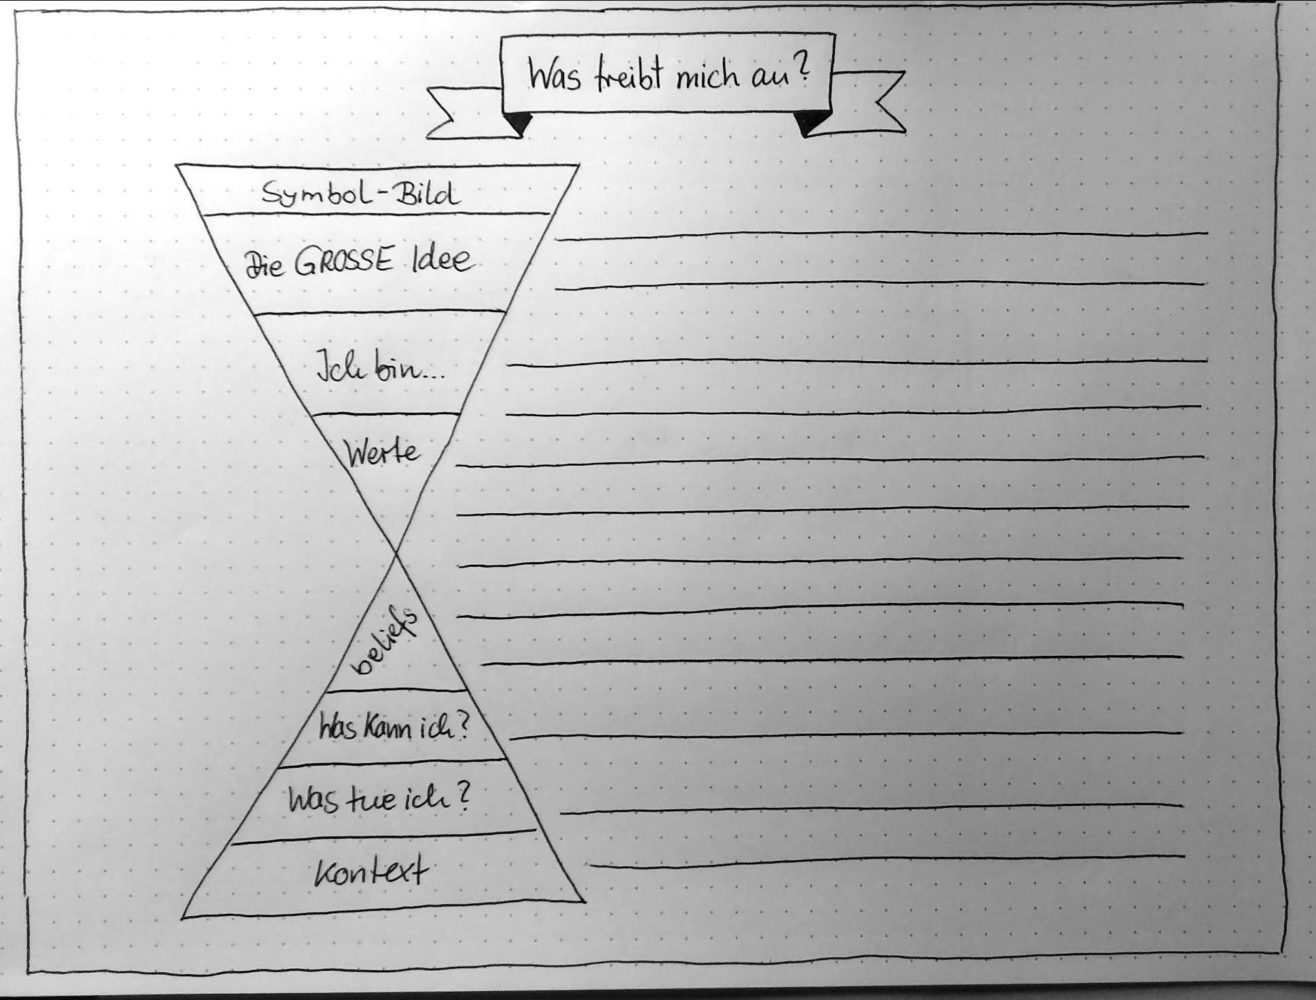 Was treibt mich an?
Symbol-Bild
Die GROSSE Idee
Ich bin...
Werte
beliefs
Was kann ich?
Was tue ich?
Kontext